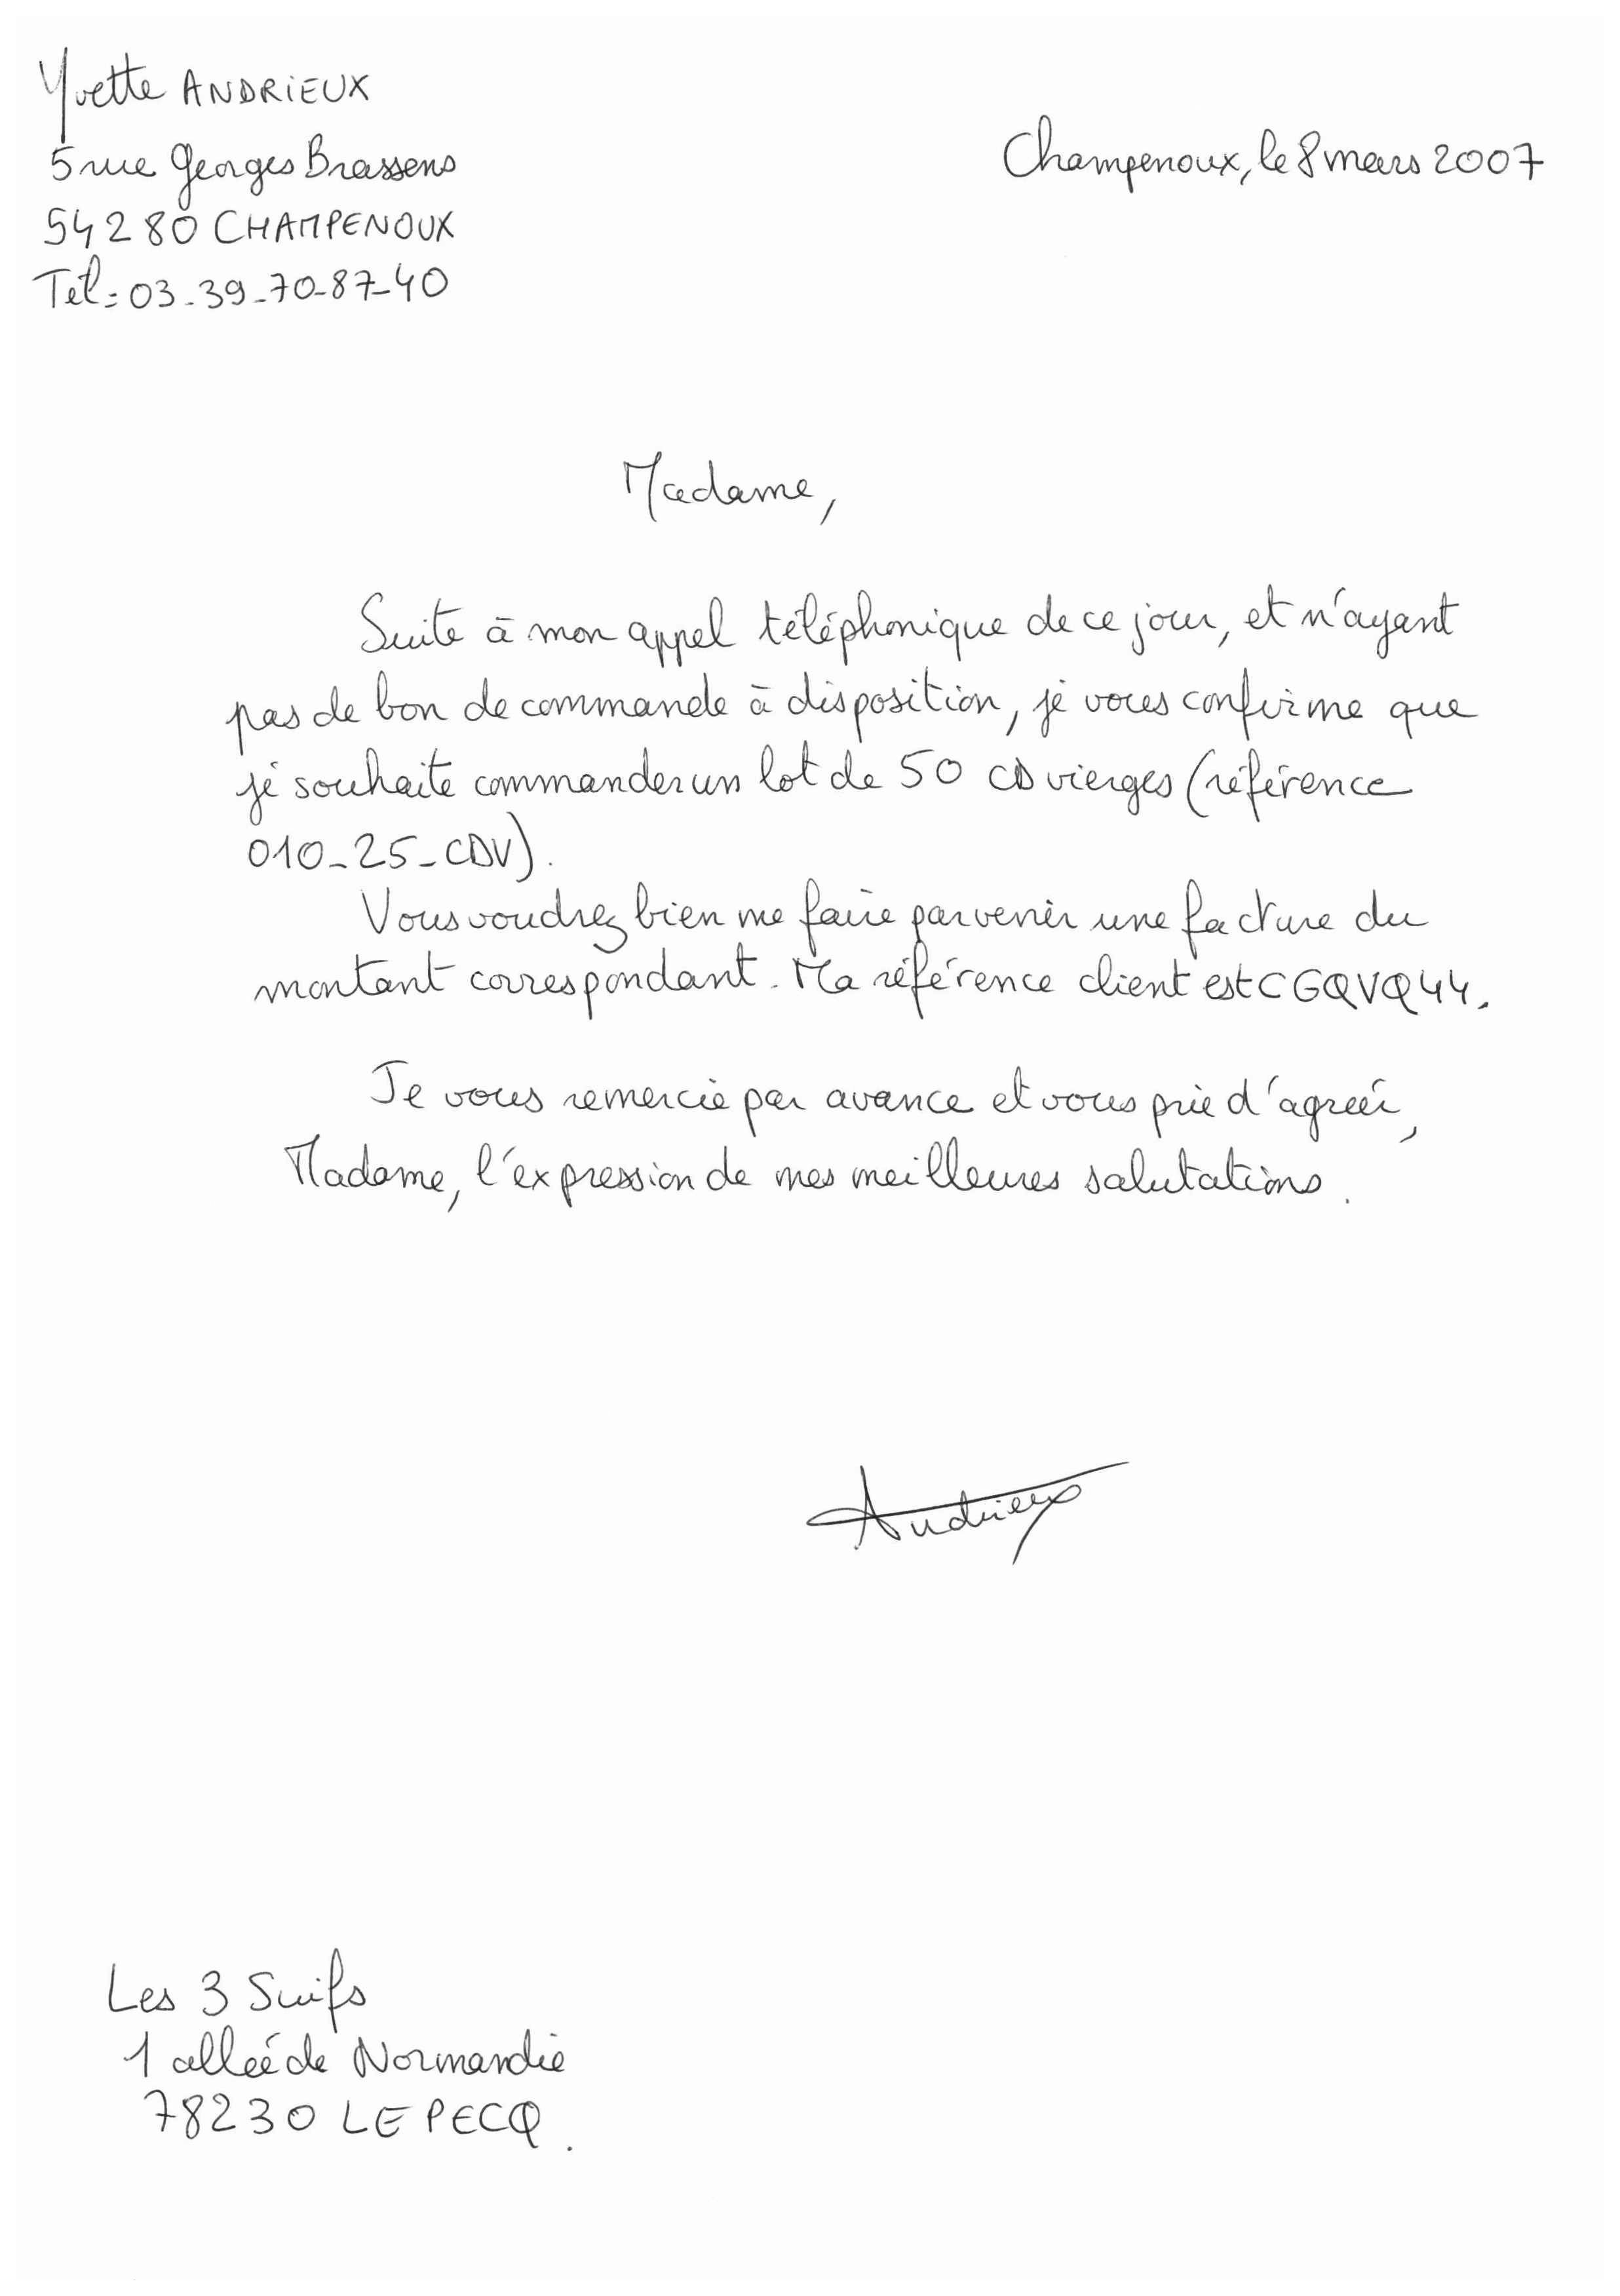 Yvette ANDRIEUX
5 rue Georges Brassens
54280 CHAMPENOUX
Tel : 03-39-70-87-40
Champenoux, le 8 mars 2007
Madame,
Suite à mon appel téléphonique de ce jour, et n'ayant
pas de bon de commande à disposition, je vous confirme que
je souhaite commander un lot de 50 CD vierges (référence
010-25-CDV).
Vous voudrez bien me faire parvenir une facture du
montant correspondant. Ma référence client est CGQVQ44.
Je vous remercie par avance et vous prie d'agréer,
Madame, l'expression de mes meilleures salutations.
Andrieux
Les 3 Suifs
1 allée de Normandie
78230 LE PECQ.